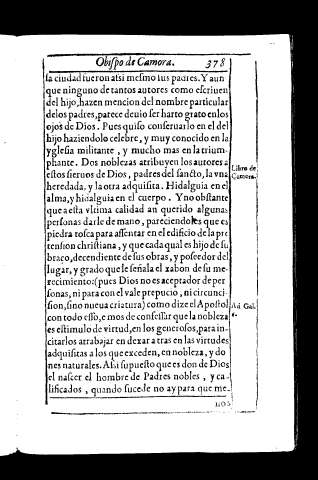 Obispo de Çamora. 378
la ciudad fueron assi mesmo sus padres. Y aun
que ninguno de tantos autores como escriuen
del hijo, hazen mencion del nombre particular
de los padres, parece deuio ser harto grato en los
ojos de Dios. Pues quiso conseruarlo en el del
hijo haziendole celebre, y muy conocido en la
yglesia militante, y mucho mas en la trium-
phante. Dos noblezas atribuyen los autores a
estos sieruos de Dios, padres del sancto, la vna
heredada, y la otra adquisita. Hidalguia en el
alma, y hidalguia en el cuerpo. Y no obstante
que a esta vltima calidad an querido algunas
personas darle de mano, pareciendoles que es
piedra tosca para assentar en el edificio de la pre
tension christiana, y que cada qual es hijo de su
braço, decendiente de sus obras, y poseedor del
lugar, y grado que le señala el xabon de su me-
recimiento: (pues Dios no es aceptador de per
sonas, ni para con el vale prepucio, ni circunci-
sion, sino nueua criatura) como dize el Apostol
con todo esso, emos de confessar que la nobleza
es estimulo de virtud, en los generosos, para in-
citarlos a trabajar en dexar a tras en las virtudes
adquisitas a los que exceden, en nobleza, y do
nes naturales. Assi supuesto que es don de Dios
el nascer el hombre de Padres nobles, y ca-
lificados, quando sucede no ay para que me-
nos
Libro de
Çamora.
Ad Gal.
6.